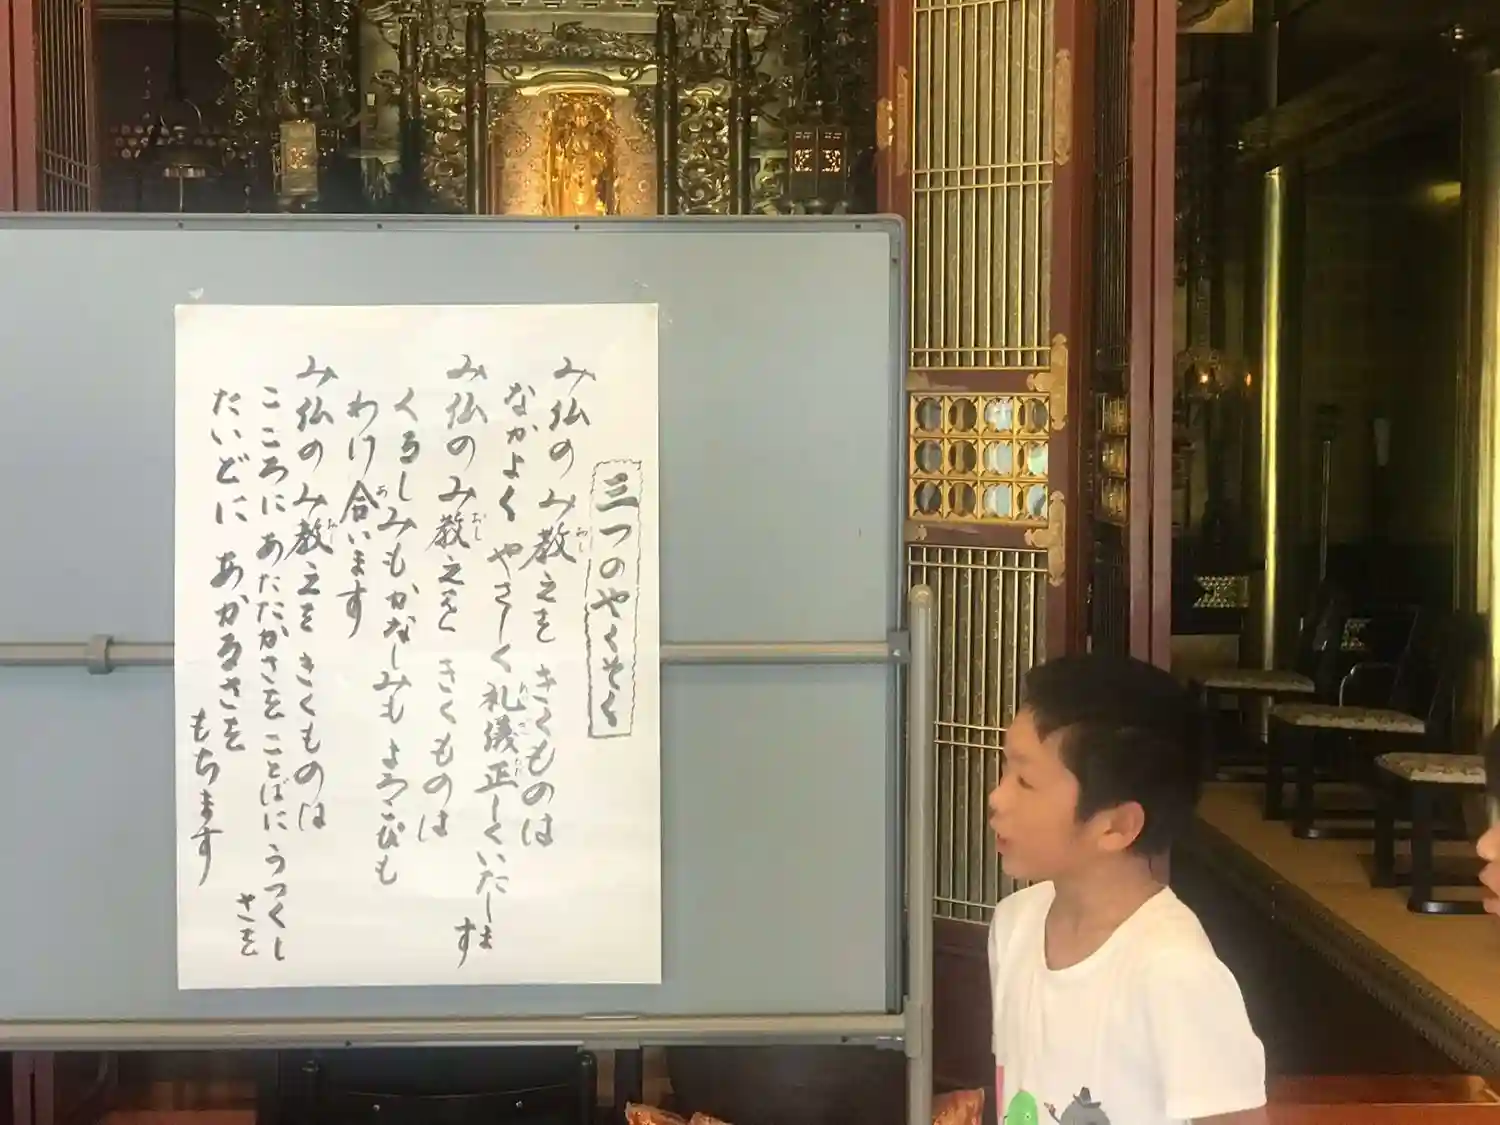 三つのやくそく
み仏のみ教えを きくものは
なかよく やさしく 礼儀正しくいたします
み仏のみ教えを きくものは
くるしみもかなしみも よろこびも
わけ合います
み仏のみ教えを きくものは
こころに あたたかさを ことばに うつくしさを
たいどに あかるさを もちます